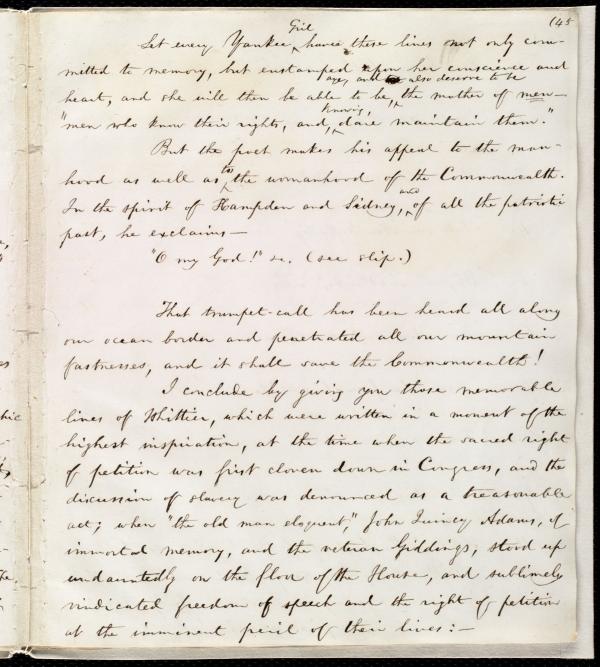 (45
Girl
Let every Yankee, have these lines not only com-
mitted to memory, but enstamped upon her conscience and
aye, and also deserve to be
heart, and she will then be able to be, the mother of men—
knowing,
"men who know their rights, and, dare maintain them."
But the poet makes his appeal to the man-
hood as well as to the womanhood of the Commonwealth.
and
In the spirit of Hampden and Sidney, of all the patriotic
past, he exclaims—
"O my God!" &c. (see slip.)
That trumpet-call has been heard all along
our ocean border and penetrated all our mountain
fastnesses, and it shall save the Commonwealth!
I conclude by giving you those memorable
lines of Whittier, which were written in a moment of the
highest inspiration, at the time when the sacred right
of petition was first cloven down in Congress, and the
discussion of slavery was denounced as a treasonable
act; when "the old man eloquent," John Quincy Adams, of
immortal memory, and the veteran Giddings, stood up
undauntedly on the floor of the House, and sublimely
vindicated freedom of speech and the right of petition
at the imminent peril of their lives:—